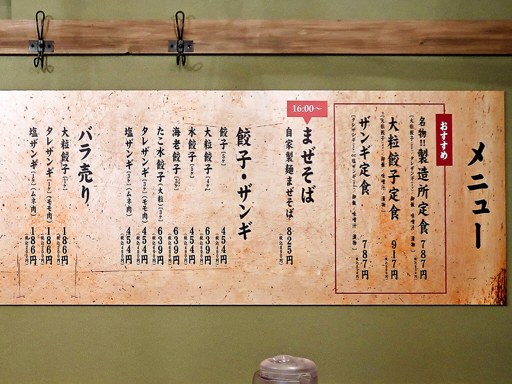 メニュー
おすすめ
名物!!製造所定食 787円
大粒餃子定食 917円
ザンギ定食 787円
16:00〜
まぜそば
自家製麺まぜそば 825円
餃子・ザンギ
餃子 454円
大粒餃子 639円
水餃子 454円
海老餃子 639円
たこ水餃子(大粒) 639円
タレザンギ (モモ肉) 454円
塩ザンギ (ムネ肉) 454円
バラ売り
大粒餃子 186円
タレザンギ (モモ肉) 186円
塩ザンギ (ムネ肉) 186円